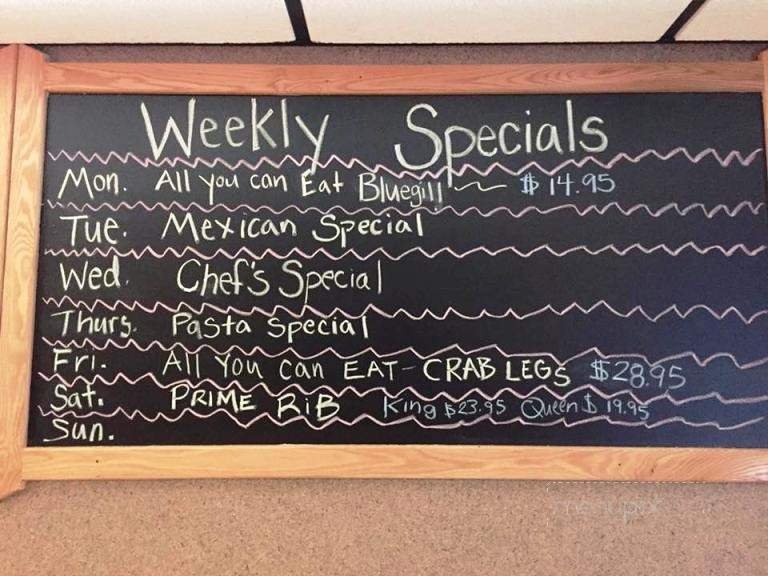 Weekly Specials
Mon. All you can Eat Bluegill ~ $14.95
Tue. Mexican Special
Wed. Chef's Special
Thurs. Pasta Special
Fri. All You can EAT - CRAB LEGS $28.95
Sat. PRIME RIB King $23.95 Queen $19.95
Sun.
menupix